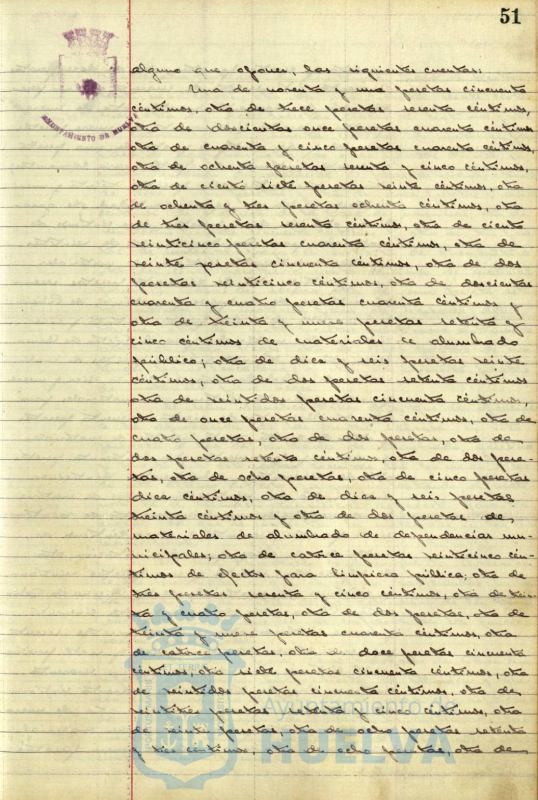 51
AYUNTAMIENTO DE HUELVA
alguno que oponer, las siguientes cuentas:
Una de noventa y una pesetas cincuenta
céntimos, otra de trece pesetas sesenta céntimos,
otra de doscientas once pesetas cuarenta céntimos
otra de cuarenta y cinco pesetas cuarenta céntimos,
otra de ochenta pesetas sesenta y cinco céntimos,
otra de ciento siete pesetas veinte céntimos, otra
de ochenta y tres pesetas ochenta céntimos, otra
de tres pesetas sesenta céntimos, otra de ciento
veinticinco pesetas cuarenta céntimos, otra de
veinte pesetas cincuenta céntimos, otra de dos
pesetas veinticinco céntimos, otra de doscientas
cuarenta y cuatro pesetas cuarenta céntimos y
otra de treinta y nueve pesetas setenta y
cinco céntimos de materiales de alumbrado
público; otra de diez y seis pesetas veinte
céntimos, otra de dos pesetas setenta céntimos
otra de veintidós pesetas cincuenta céntimos,
otra de once pesetas cuarenta céntimos, otra de
cuatro pesetas, otra de dos pesetas, otra de
dos pesetas setenta céntimos, otra de dos pese-
tas, otra de ocho pesetas, otra de cinco pesetas
diez céntimos, otra de diez y seis pesetas
treinta céntimos y otra de dos pesetas de
materiales de alumbrado de dependencias mu-
nicipales; otra de catorce pesetas veinticinco cén-
timos de efectos para limpieza pública; otra de
tres pesetas sesenta y cinco céntimos, otra de trein-
ta y cuatro pesetas, otra de dos pesetas, otra de
treinta y nueve pesetas cuarenta céntimos, otra
de catorce pesetas, otra de doce pesetas cincuenta
céntimos, otra siete pesetas cincuenta céntimos, otra
de veintidós pesetas cincuenta céntimos, otra de
veintitrés pesetas setenta y cinco céntimos, otra
de veinte pesetas, otra de ocho pesetas setenta
y céntimos, otra de ocho pesetas, otra de
Ayuntamiento de
HUELVA